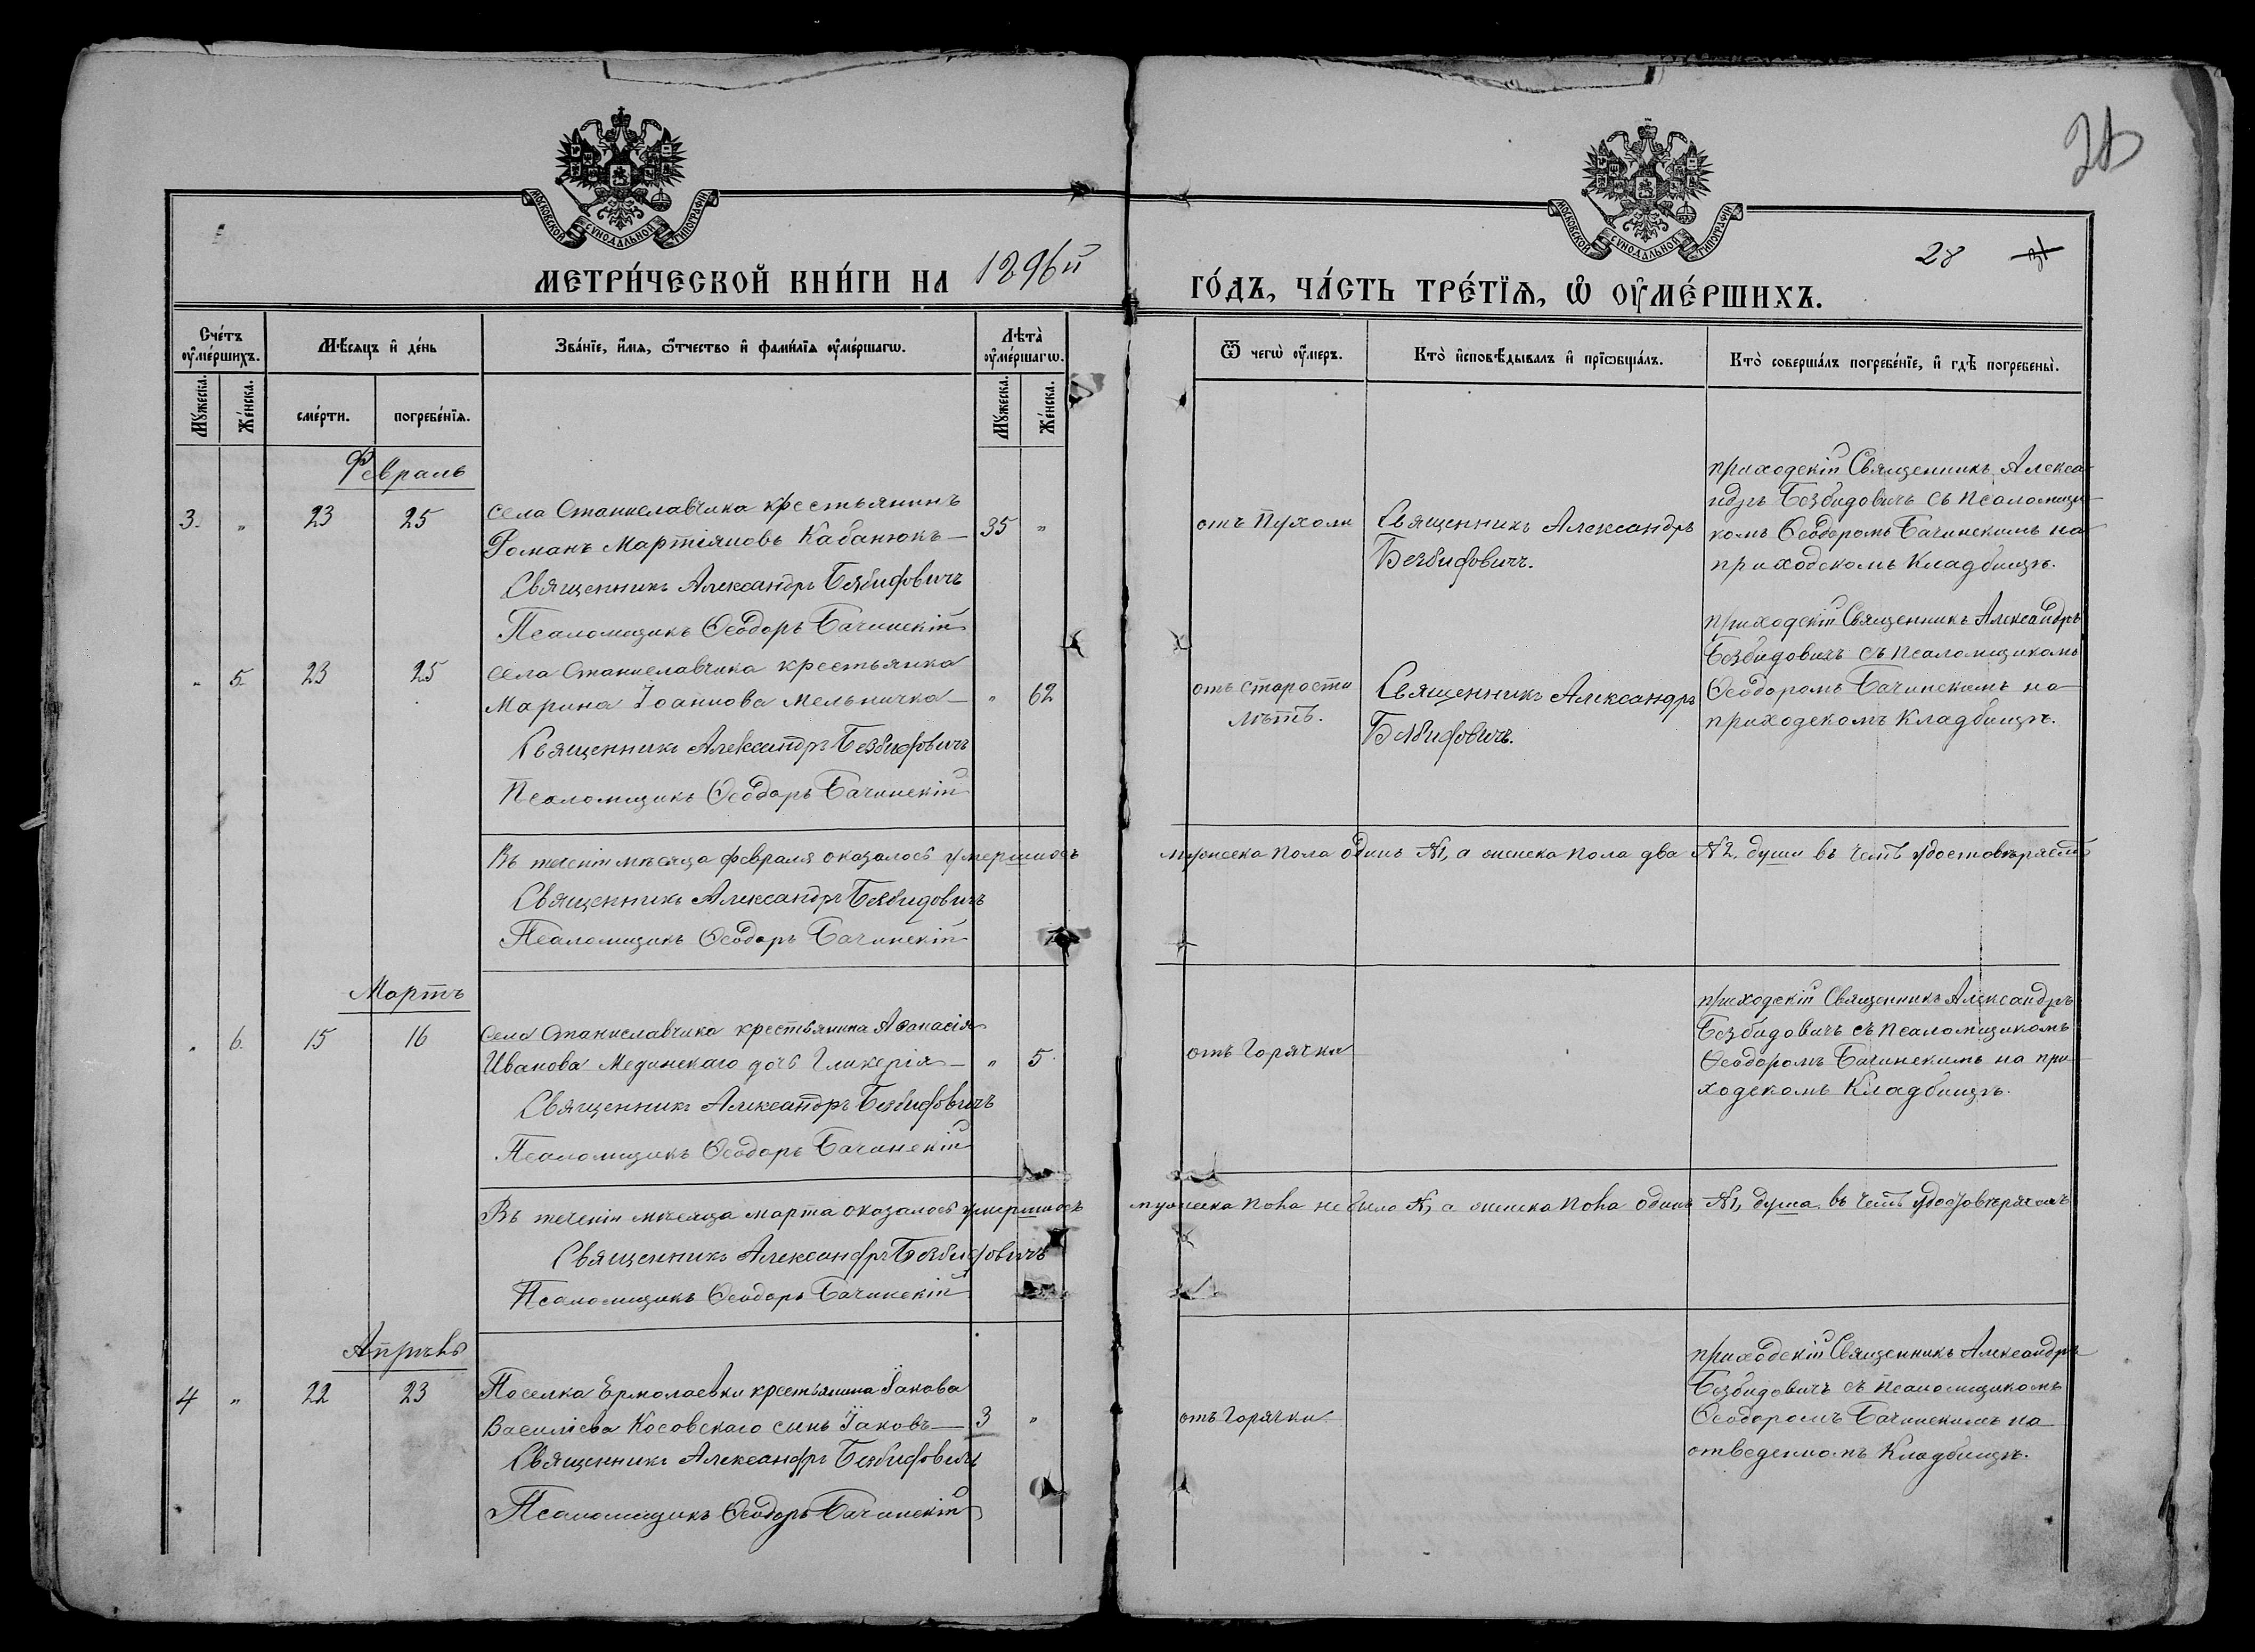 28
МОСКОВСКОЙ СѴНОДАЛЬНОЙ ТИПОГРАФІИ
МОСКОВСКОЙ СѴНОДАЛЬНОЙ ТИПОГРАФІИ
МЕТРИ́ЧЕСКОЙ КНИ́ГИ НА 1896й ГО́ДЪ, ЧА́СТЬ ТРЕ́ТЇѦ, Ѽ ОУ҆МЕ́РШИХЪ.
28 31
Сче́тъ оу҆ме́ршихъ.
Мѣ́сяцъ и҆ де́нь
Зва́нїе, и҆́мя, ѻ҆́тчество и҆ фами́лїя оу҆ме́ршагѡ.
Лѣта̀ оу҆ме́ршагѡ.
Ѿ чегѡ̀ оу҆́меръ.
Кто̀ и҆сповѣ́дывалъ и҆ прїѡбща́лъ.
Кто̀ соверша́лъ погребе́нїе, и҆ гдѣ̀ погребены̀.
Мꙋ́жеска. Же́нска. сме́рти. погребе́нїя. Мꙋ́жеска. Же́нска.
Февраль
3. „ 23 25
села Станиславчика крестьянинъ
Романъ Мартіяновъ Кабанюкъ — 35 „
Священникъ Александръ Безбидовичъ
Псаломщикъ Ѳеодоръ Бачинскій
отъ Пухоли
Священникъ Александръ
Безбидовичъ.
приходскій Священникъ Алекса-
ндръ Безбидовичъ съ псаломщи-
комъ Ѳеодоромъ Бачинскимъ на
приходскомъ Кладбищѣ.
„ 5. 23 25
села Станиславчика крестьянка
Марина Іоаннова Мельничка — „ 62
Священникъ Александръ Безбидовичъ
Псаломщикъ Ѳеодоръ Бачинскій
отъ старости
лѣтъ.
Священникъ Александръ
Безбидовичъ.
приходскій Священникъ Александръ
Безбидовичъ съ псаломщикомъ
Ѳеодоромъ Бачинскимъ на
приходскомъ Кладбищѣ.
Въ теченіи мѣсяца февраля оказалось умершихъ мужеска пола одинъ №1, а женска пола два №2, души въ чемъ удостовѣряемъ
Священникъ Александръ Безбидовичъ
Псаломщикъ Ѳеодоръ Бачинскій
Мартъ
„ 6. 15 16
села Станиславчика крестьянина Аѳанасія
Иванова Мединскаго дочь Гликерія — „ 5.
Священникъ Александръ Безбидовичъ
Псаломщикъ Ѳеодоръ Бачинскій
отъ Горячки
приходскій Священникъ Александръ
Безбидовичъ съ псаломщикомъ
Ѳеодоромъ Бачинскимъ на при-
ходскомъ Кладбищѣ.
Въ теченіи мѣсяца марта оказалось умершихъ мужеска пола не было №, а женска пола одинъ №1, душа въ чемъ удостовѣряемъ
Священникъ Александръ Безбидовичъ
Псаломщикъ Ѳеодоръ Бачинскій
Апрѣль
4 „ 22 23
Поселка Ермолаевки крестьянина Іакова
Василіева Косовскаго сынъ Іаковъ — 3 „
Священникъ Александръ Безбидовичъ
Псаломщикъ Ѳеодоръ Бачинскій
отъ Горячки
приходскій Священникъ Александръ
Безбидовичъ съ псаломщикомъ
Ѳеодоромъ Бачинскимъ на
отведенномъ Кладбищѣ.